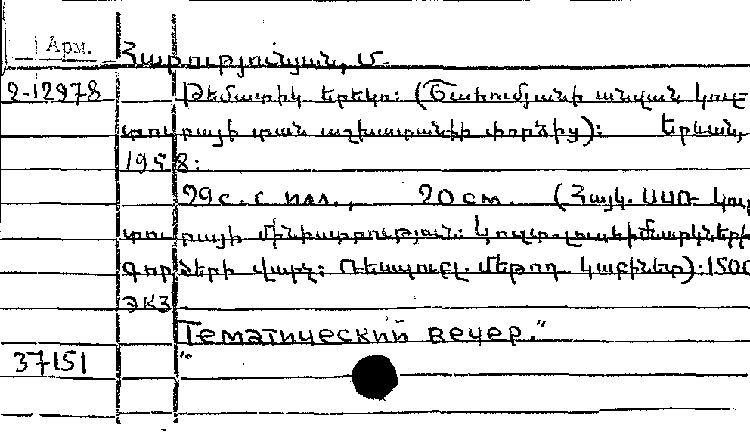 Арм. Հարությունյան, Մ.
2-12978 Թեմատիկ երեկո: (Շահումյանի անվան կուլ-
տուրայի տան աշխատանքի փորձից): Երևան,
1958:
29 с. с илл., 20 см. (Հայկ. ՍՍՌ կուլ-
տուրայի մինիստրություն: Կուլտ-լուս հիմնարկների
գործերի վարչ: Ռեսպուբլ. մեթոդ. կաբինետ): 1500
экз.
"Тематический вечер."
37151